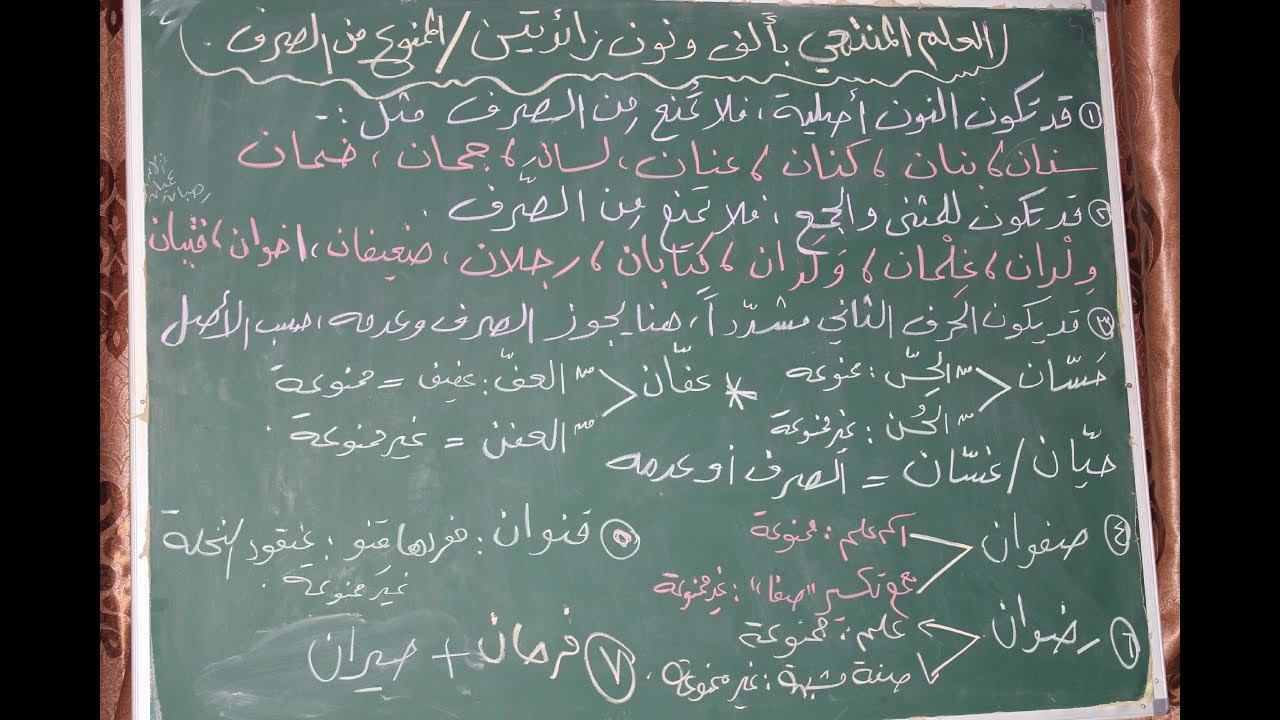 العلم المنتهي بألف ونون زائدتين / الممنوع من الصرف.
① قد تكون النون أصلية، فلا تُمنع مِن الصرف مثل :-
سنان، بنان، كنان، عنان، لسان، جمان، ضمان
② قد تكون للمثنى والجمع، فلا تمنع مِن الصَّرف.
وِلْدان، غِلْمان، وَلَدان، كتابان، رجلان، ضعيفان، اخوان، فتيان
③ قد يكون الحرف الثاني مشدّداً، هنا يجوز الصرف وعدمه، حسب الأصل
حَسّان > من الحِسّ : ممنوعة * عفّان > من العفّ : عفيف = ممنوعة
من الحُسن : غير ممنوعة من العفن = غير ممنوعة.
حيّان / غسّان = الصرف أو عدمه
④ صفوان اسم علم : ممنوعة
جمع تكسير "صفا" : غير ممنوعة
⑤ قنوان : مفردها قنو : عنقود النخلة
غير ممنوعة.
⑥ رضوان علم : ممنوعة
صفة مشبهة : غير ممنوعة.
⑦ فرحان + حيران